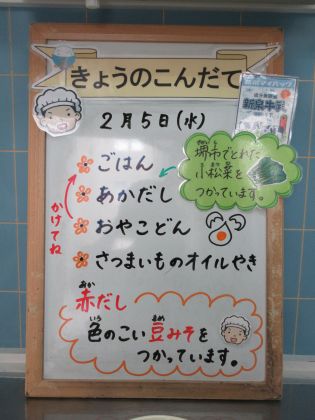 きょうのこんだて
2月5日(水)
ごはん
あかだし
おやこどん
さつまいものオイルやき
かけてね
堺市でとれた
小松菜を
つかっています。
新泉牛乳
赤だし
あか
色のこい豆みそを
いろ まめ
つかっています。